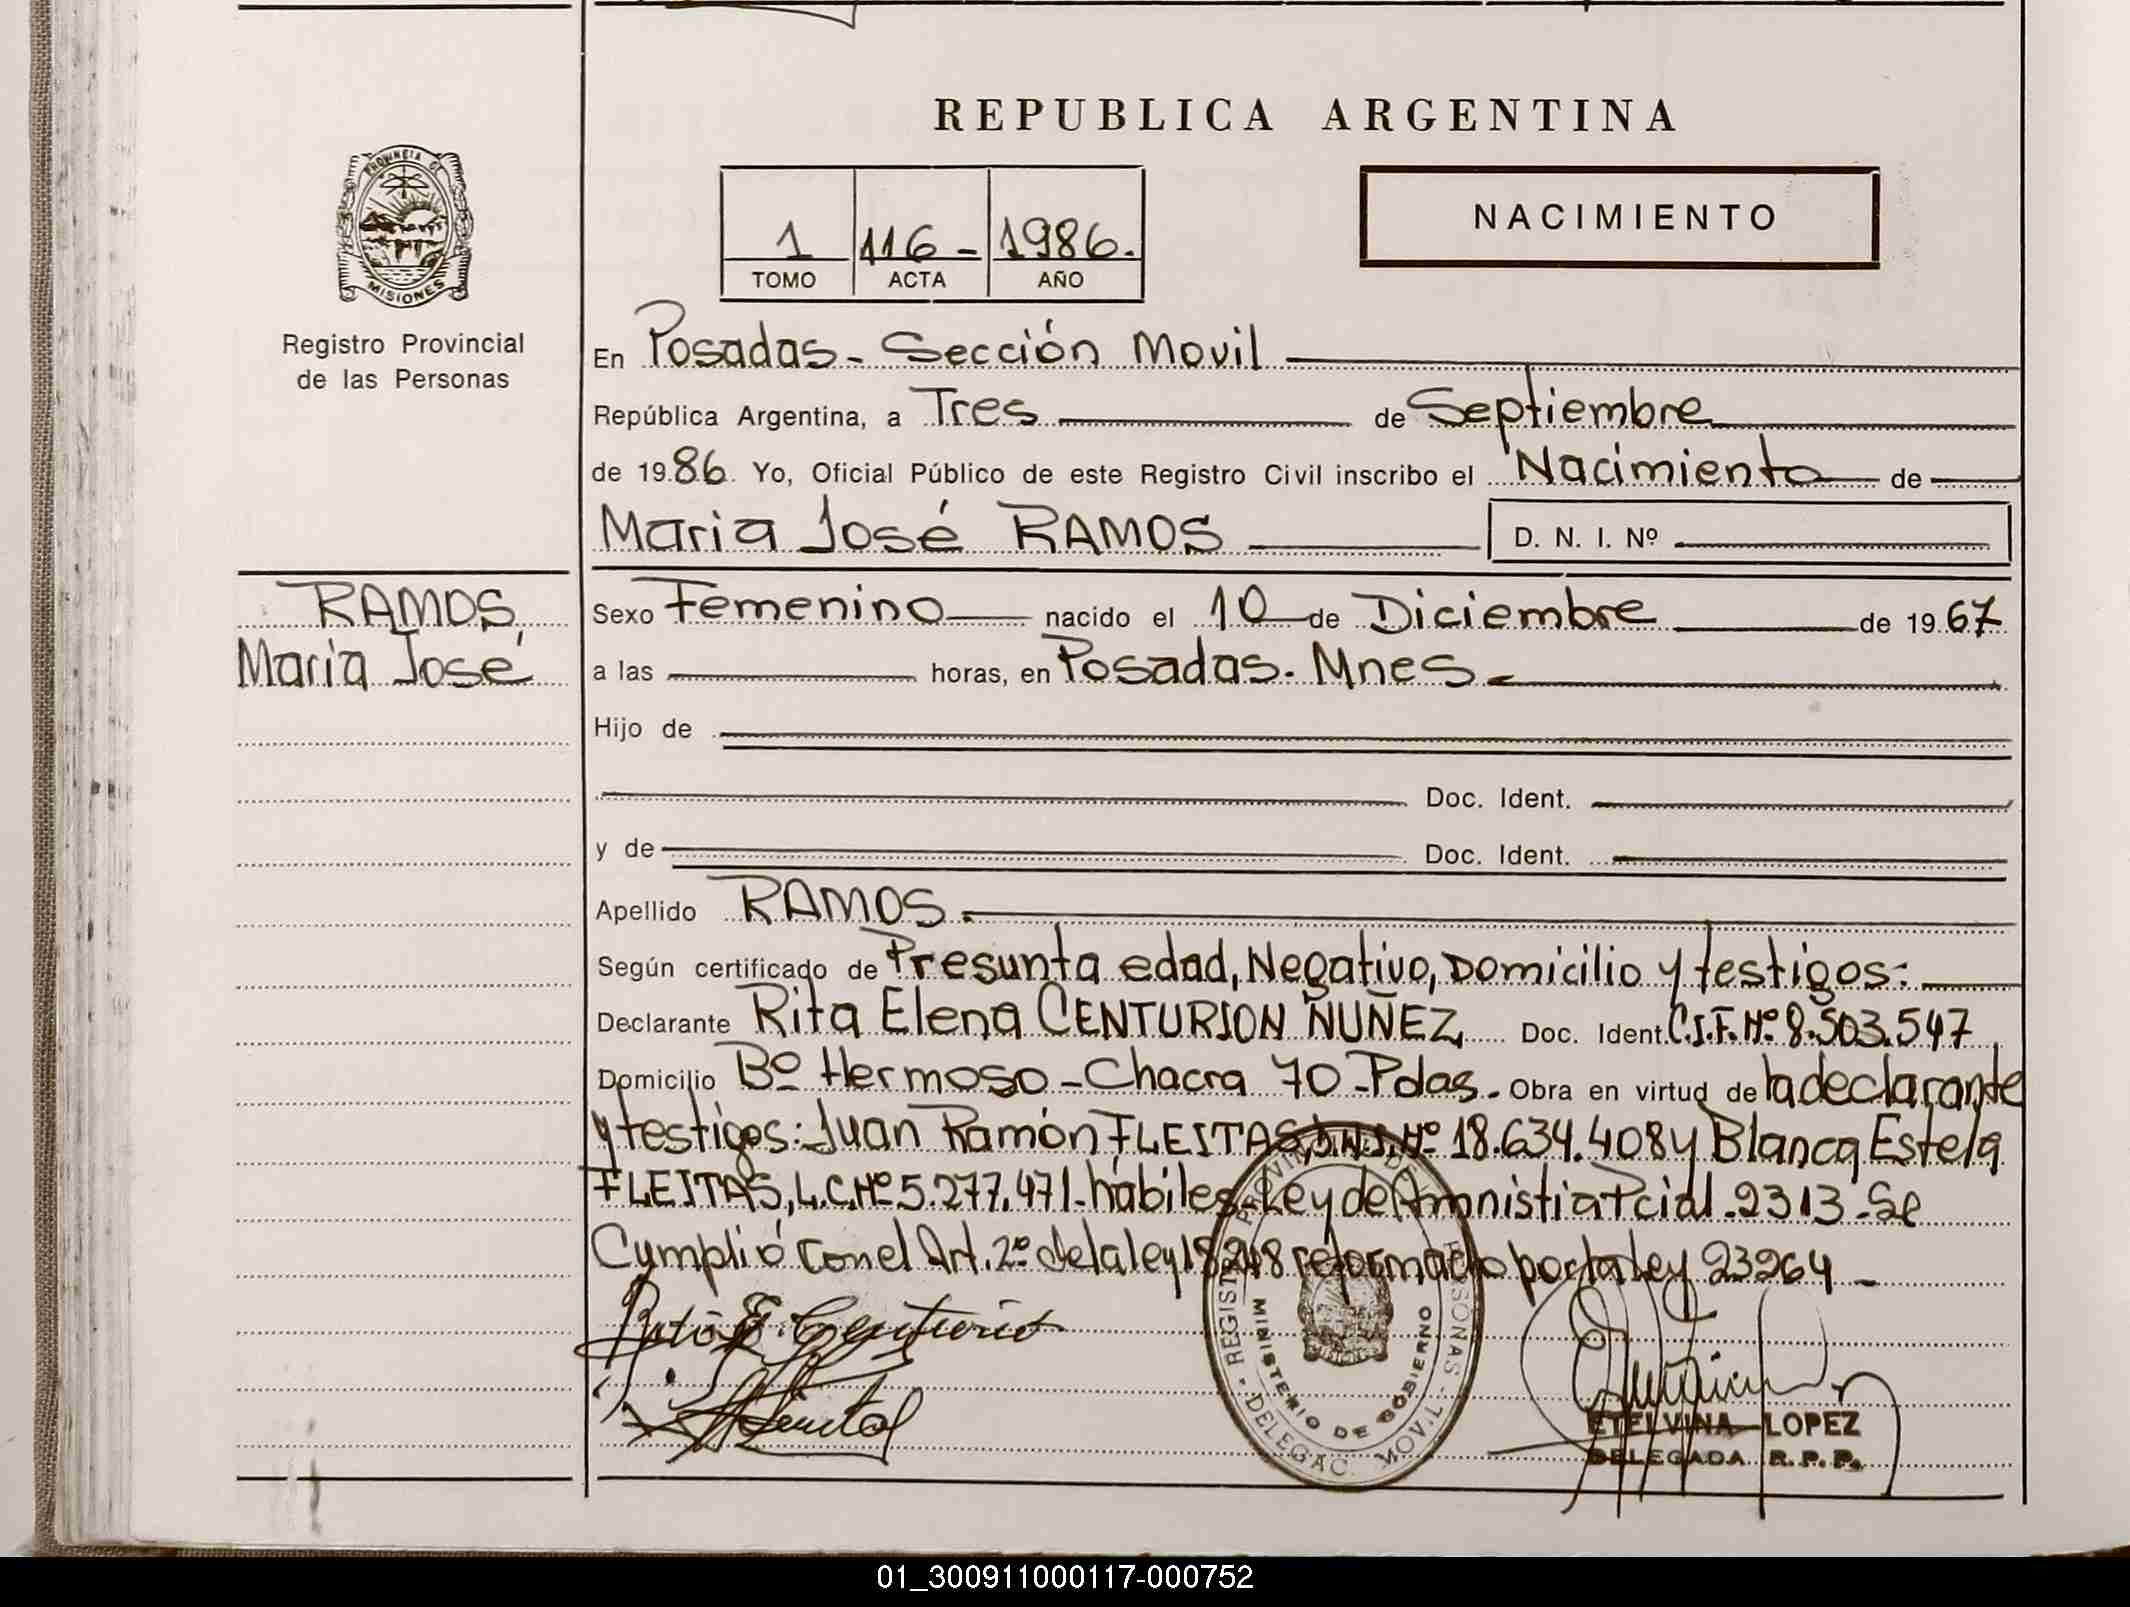 REPUBLICA ARGENTINA
PROVINCIA DE
MISIONES
Registro Provincial
de las Personas
1 116- 1986.
TOMO ACTA AÑO
NACIMIENTO
En Posadas - Sección Movil
República Argentina, a Tres de Septiembre
de 1986. Yo, Oficial Público de este Registro Civil inscribo el Nacimiento de
Maria José RAMOS D. N. I. Nº
RAMOS,
Maria José
Sexo Femenino nacido el 10 de Diciembre de 1967
a las horas, en Posadas. Mnes.
Hijo de
Doc. Ident.
y de Doc. Ident.
Apellido RAMOS.
Según certificado de Presunta edad, Negativo, Domicilio y testigos:
Declarante Rita Elena CENTURION ÑUÑEZ, Doc. Ident. C.I.F. Nº 8.503.547,
Domicilio Bº Hermoso - Chacra 70 - Pdas. Obra en virtud de la declarante
y testigos: Juan Ramón FLEITAS, D.N.I. Nº 18.634.408 y Blanca Estela
FLEITAS, L.C. Nº 5.277.471- hábiles - Ley de Amnistia Pcial. 2313 - Se
Cumplió con el Art. 2º de la ley 18248 reformado por la Ley 23264 -
REGISTRO PROVINCIAL DE PERSONAS
MINISTERIO DE GOBIERNO
- DELEGAC. MOVIL -
ETELVINA LOPEZ
DELEGADA R. P. P.
01_300911000117-000752